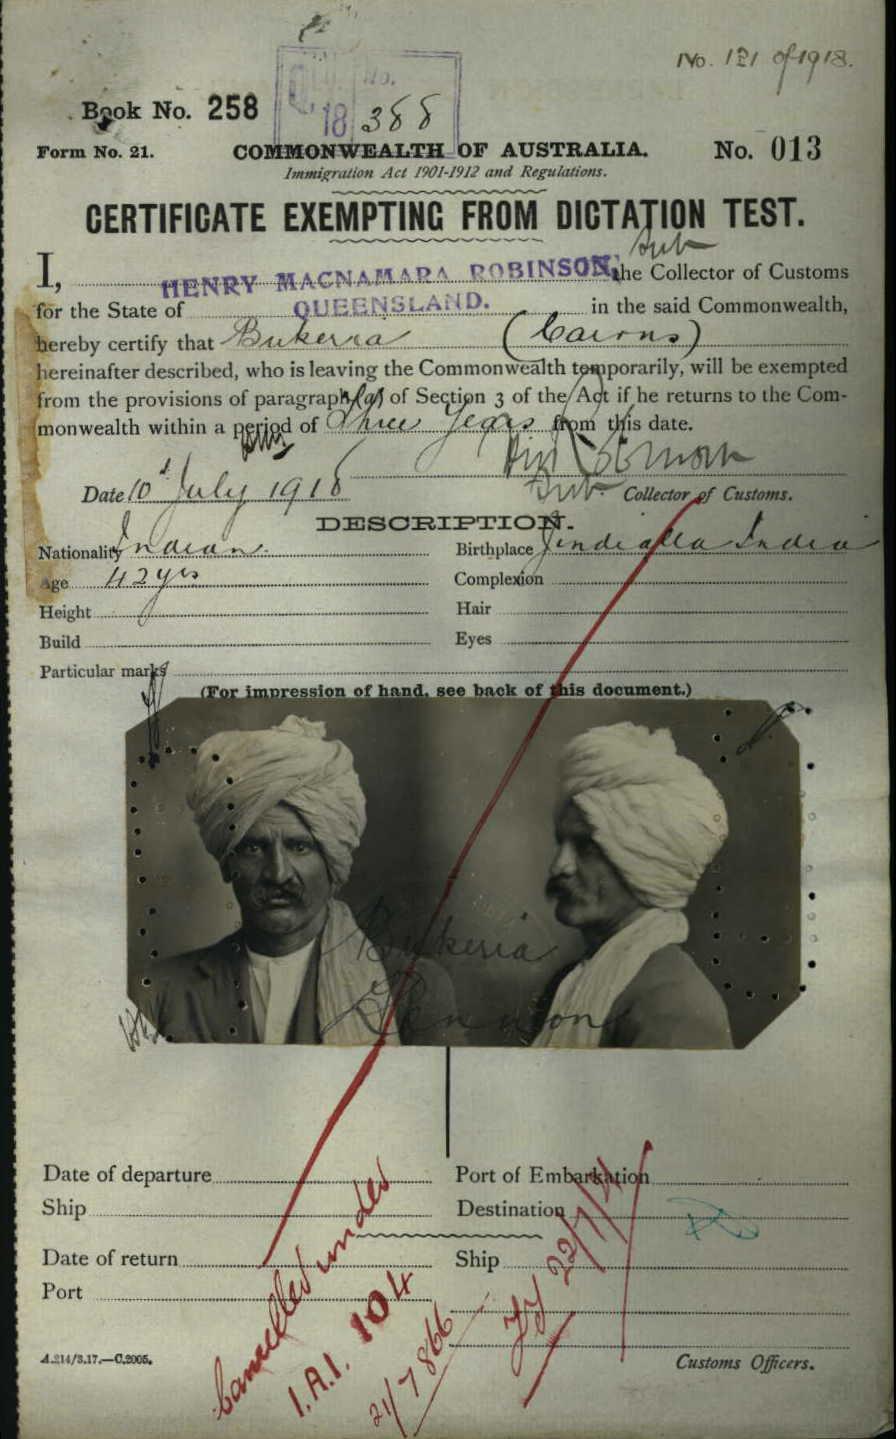 No. 121 of 1918.
Book No. 258
18 388
Form No. 21.
COMMONWEALTH OF AUSTRALIA.
No. 013
Immigration Act 1901-1912 and Regulations.
CERTIFICATE EXEMPTING FROM DICTATION TEST.
Sub
I, HENRY MACNAMARA ROBINSON, the Collector of Customs
for the State of QUEENSLAND. in the said Commonwealth,
hereby certify that Bukeria (Cairns)
hereinafter described, who is leaving the Commonwealth temporarily, will be exempted
from the provisions of paragraph (a) of Section 3 of the Act if he returns to the Com-
monwealth within a period of Three Years from this date.
Date 10 July 1918 Sub Collector of Customs.
DESCRIPTION.
Nationality Indian
Birthplace India
Age 42 yrs
Complexion
Height
Hair
Build
Eyes
Particular marks
(For impression of hand, see back of this document.)
Bukeria
Date of departure
Port of Embarkation
Ship
Destination
Date of return
Ship
Port
Cancelled under
I.A.I. 104
A.214/3.17.—C.2005.
Customs Officers.